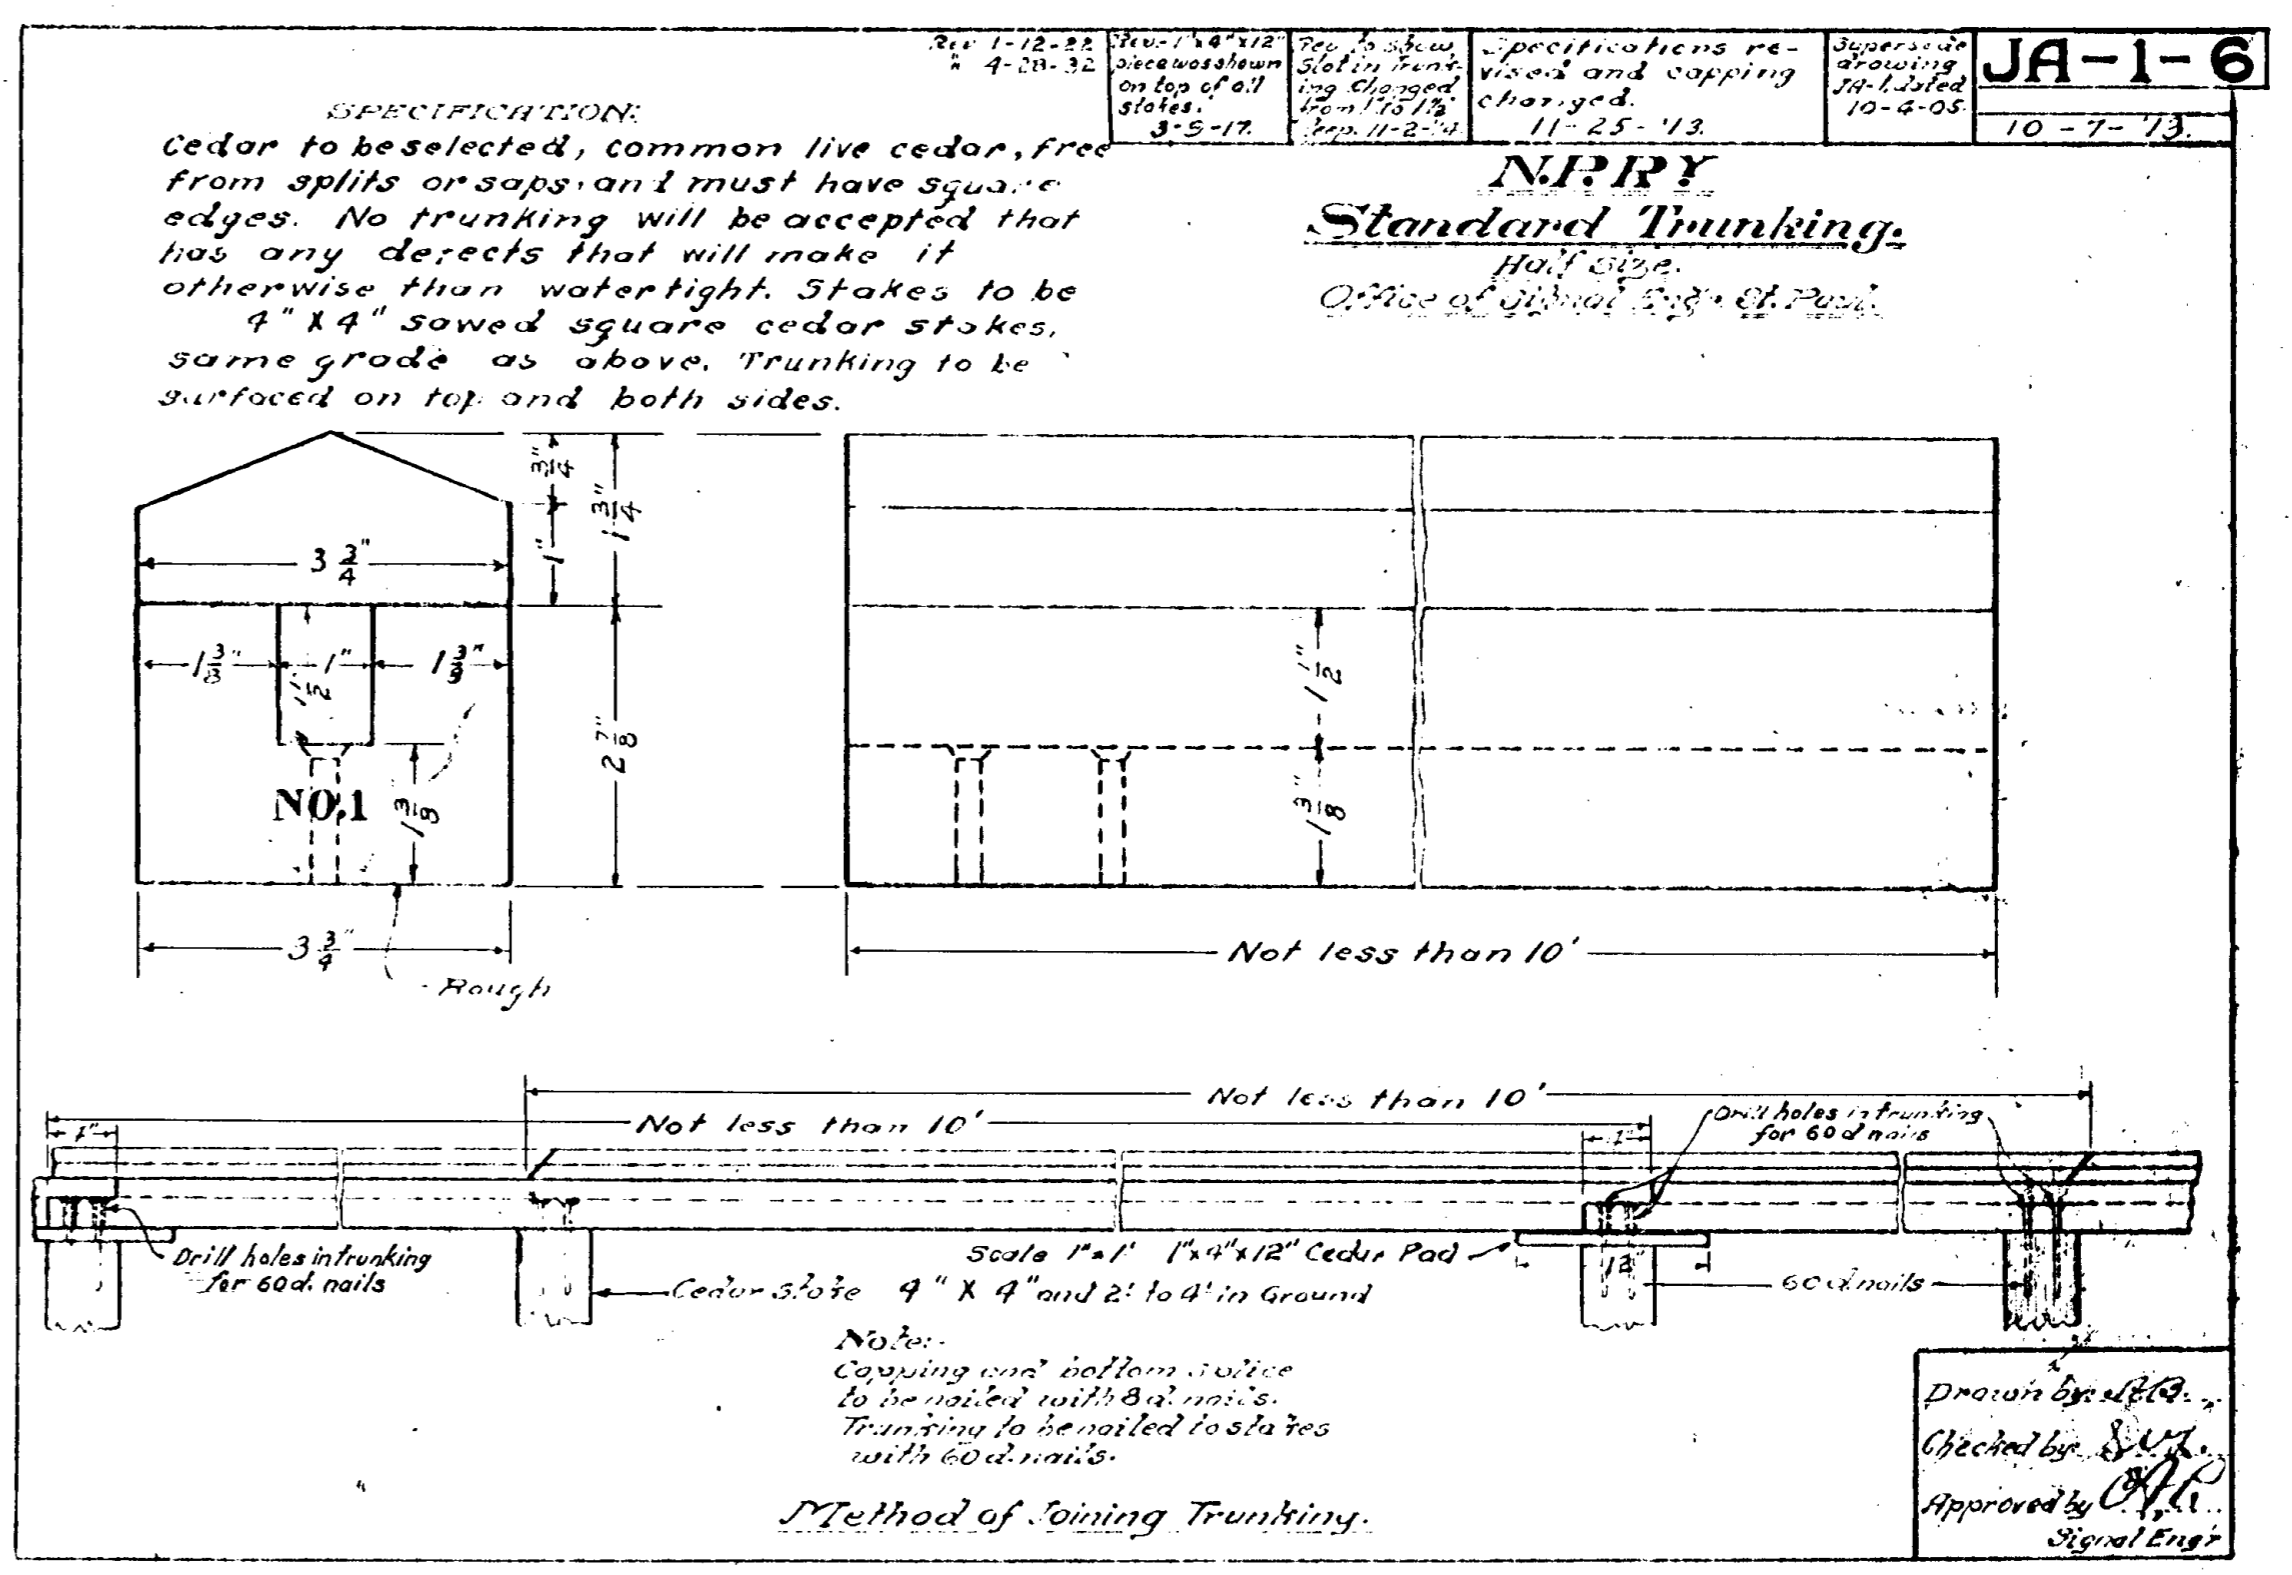 Rev 1-12-22
" 4-28-32
Rev. 1"x4"x12"
piece was shown
on top of all
stakes.
3-9-17.
Rev. to show
Slot in Trunk-
ing Changed
from 1" to 1½"
11-2-14
Specifications re-
vised and capping
changed.
11-25-'13.
Supersede
drawing
JA-1. dated
10-4-05.
JA-1-6
10-7-'13.
SPECIFICATION:
Cedar to be selected, common live cedar, free
from splits or saps, and must have square
edges. No trunking will be accepted that
has any defects that will make it
otherwise than watertight. Stakes to be
4" X 4" sawed square cedar stakes,
same grade as above. Trunking to be
surfaced on top and both sides.
N.P.RY
Standard Trunking.
Half Size.
Office of Signal Eng'r. St. Paul.
3/4"
1 3/4"
1"
3 3/4"
1 3/8"
1"
1 3/8"
1 1/2
2 7/8"
NO.1
1 3/8"
3 3/4"
Rough
1 1/2"
1 3/8"
Not less than 10'
Not less than 10'
Not less than 10'
1"
1"
Drill holes in trunking
for 60 d nails
Drill holes in trunking
for 60 d. nails
Scale 1"=1'
1"x4"x12" Cedar Pad
12"
Cedar Stake 4" X 4" and 2' to 4' in Ground
60 d nails
Note:-
Capping and bottom splice
to be nailed with 8 d. nails.
Trunking to be nailed to stakes
with 60 d. nails.
Method of Joining Trunking.
Drawn by:
Checked by:
Approved by
Signal Engr